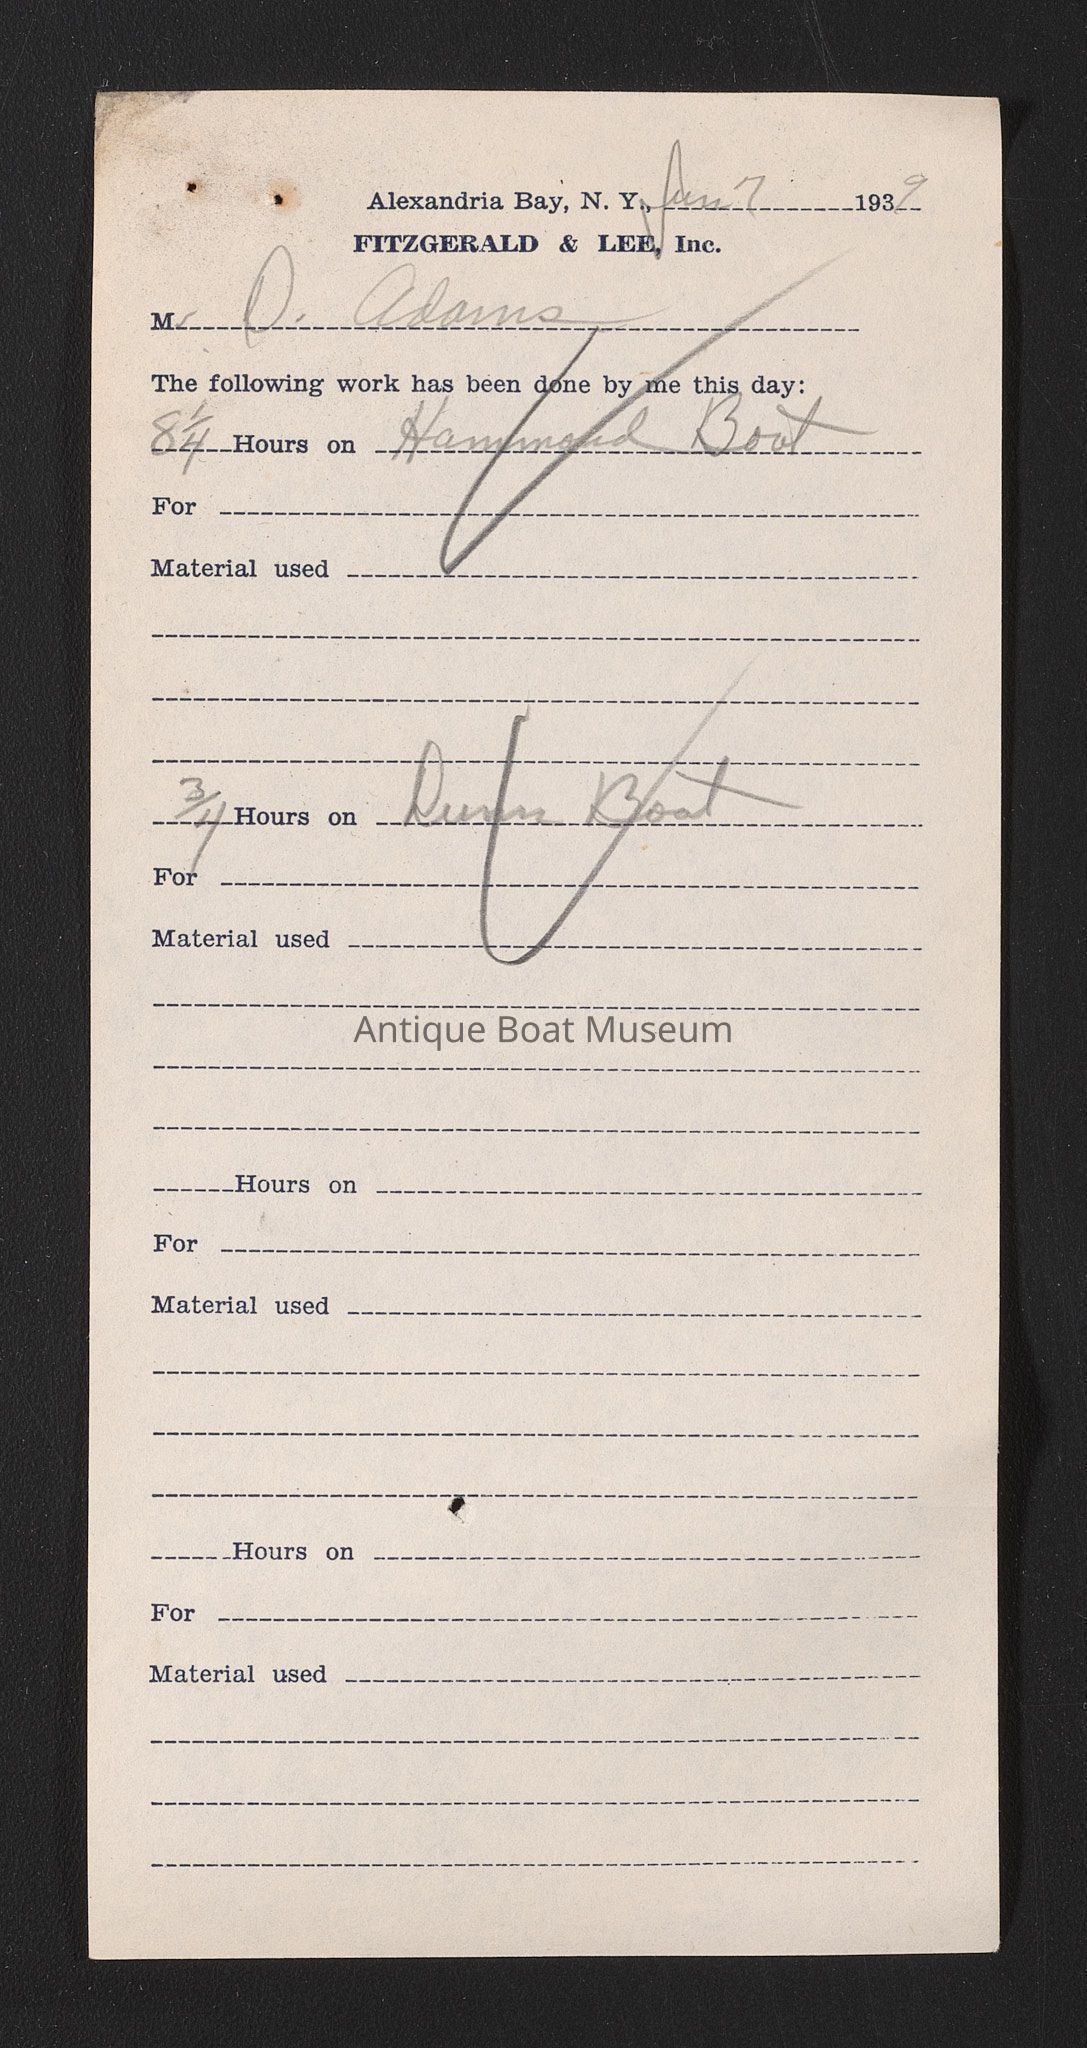 Alexandria Bay, N. Y., Jun 7 1939
FITZGERALD & LEE, Inc.
Mr D. Adams
The following work has been done by me this day:
8 1/4 Hours on Hammond Boat
For
Material used
3/4 Hours on Dunn Boat
For
Material used
Antique Boat Museum
Hours on
For
Material used
Hours on
For
Material used